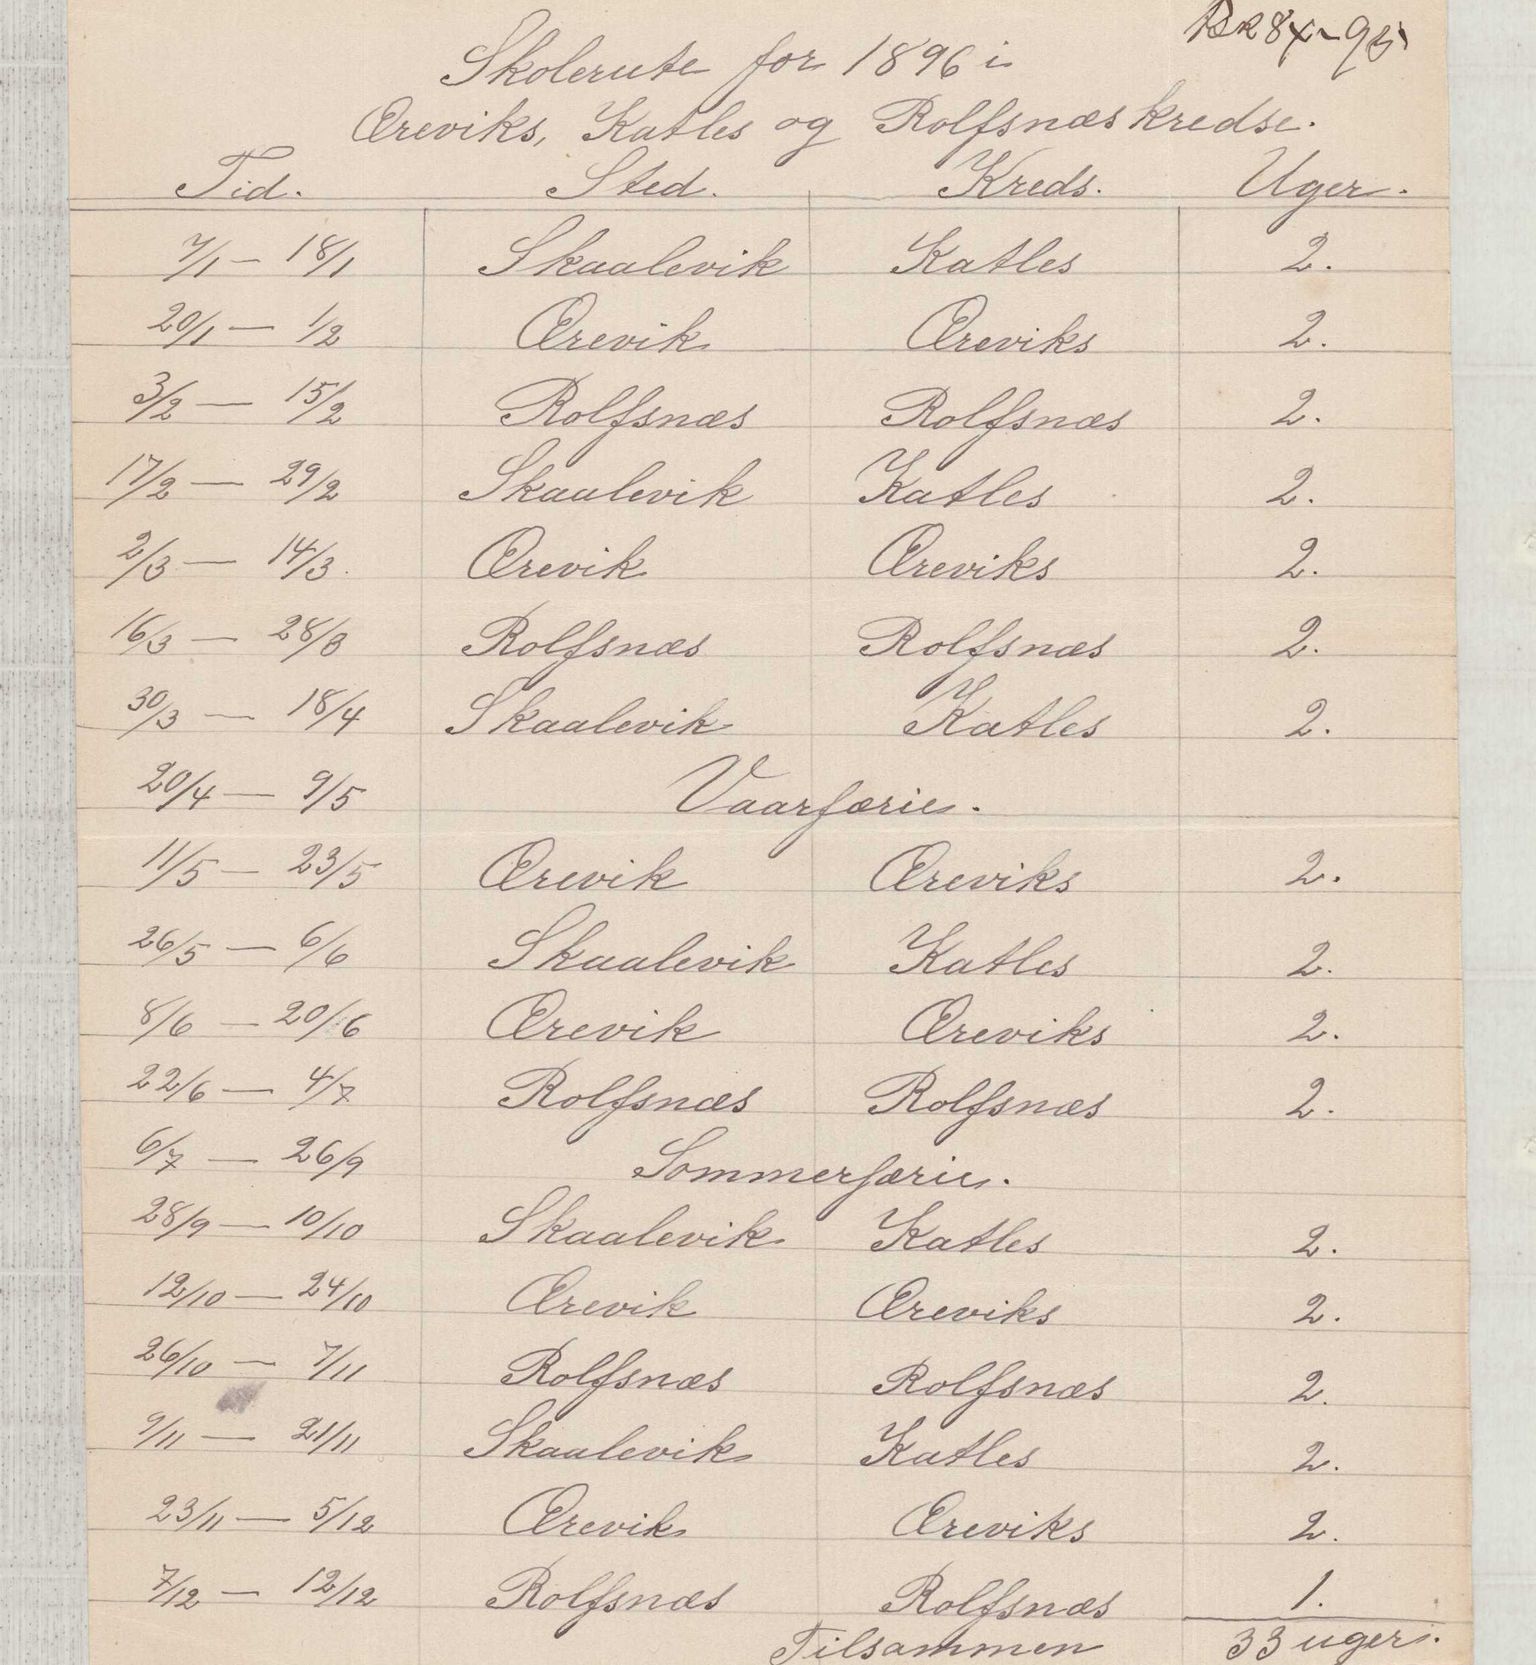 Skolerute for 1896 i
Œreviks, Katles og Rolfsnæs kredse.
Tid. Sted. Kreds. Uger.
7/1 — 18/1 Skaalevik Katles 2.
20/1 — 1/2 Œrevik Œreviks 2.
3/2 — 15/2 Rolfsnæs Rolfsnæs 2.
17/2 — 29/2 Skaalevik Katles 2.
2/3 — 14/3. Œrevik Œreviks 2.
16/3 — 28/3 Rolfsnæs Rolfsnæs 2.
30/3 — 18/4 Skaalevik Katles 2.
20/4 — 9/5 Vaarferie.
11/5 — 23/5 Œrevik Œreviks 2.
26/5 — 6/6 Skaalevik Katles 2.
8/6 — 20/6 Œrevik Œreviks 2.
22/6 — 4/7 Rolfsnæs Rolfsnæs 2.
6/7 — 26/9 Sommerferie.
28/9 — 10/10 Skaalevik Katles 2.
12/10 — 24/10 Œrevik Œreviks 2.
26/10 — 7/11 Rolfsnæs Rolfsnæs 2.
9/11 — 21/11 Skaalevik Katles 2.
23/11 — 5/12 Œrevik Œreviks 2.
7/12 — 12/12 Rolfsnæs Rolfsnæs 1.
Tilsammen 33 uger.